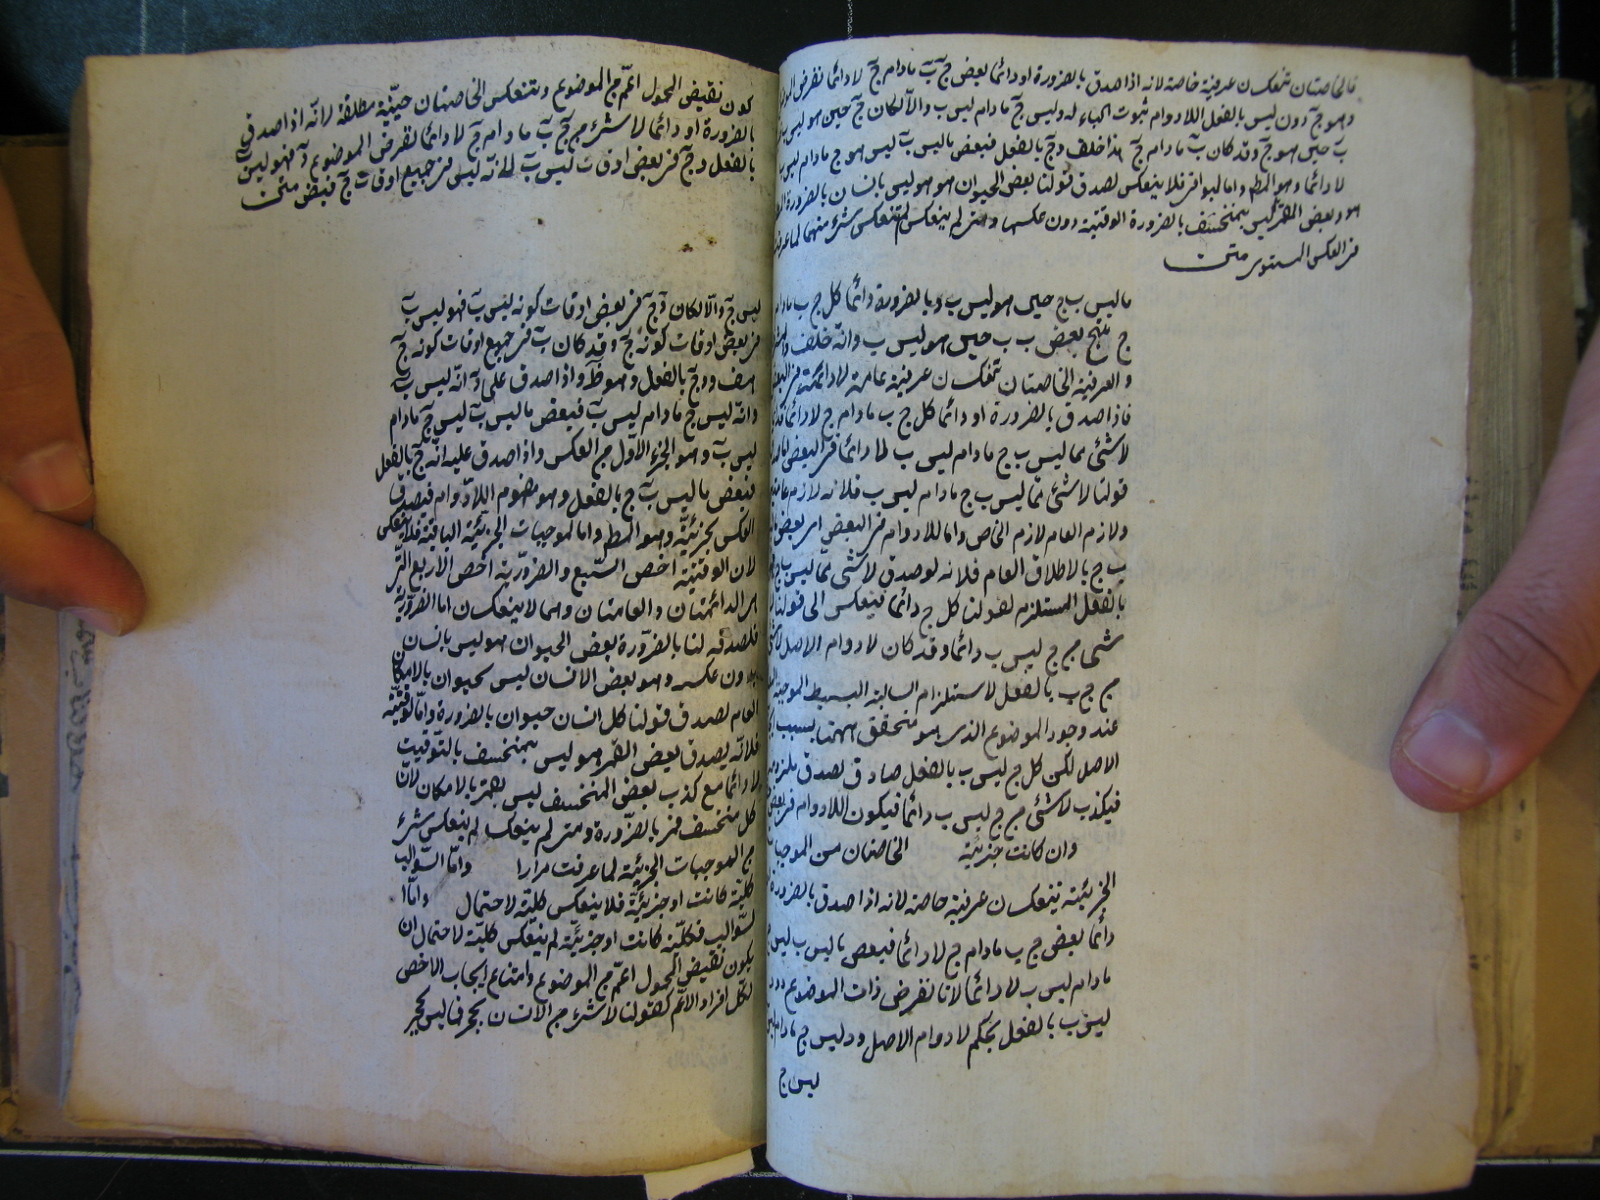 فالخاصتان تنعكسان عرفية خاصة لانه اذا صدق بالضرورة او دائما بعض ج ب مادام ج لا دائما نفرض الموضوع
وهو ج د ليس بالفعل اللادوام ثبوت الباء له وليس ج مادام ليس ب والا لكان ج حين هو ليس ب
ب حين هو ج وقد كان ب مادام ج هذا خلف و ج بالفعل فبعض ما ليس ب ليس هو ج مادام ليس ب
لا دائما وهو المط واما البواقي فلا ينعكس لصدق قولنا بعض الحيوان هو هو ليس بانسان بالضرورة
هو وبعض القمر ليس بمنخسف بالضرورة الوقتية دون عكسه ومتى لم ينعكس لم تنعكس شئ منهما لما عرفت
في العكس المستوى متن
ما ليس ب ج حين هو ليس ب وبالضرورة دائما كل ج ب مادام
ج ينتج بعض ب ب حين هو ليس ب وانه خلف
والعرفية الخاصتان تنعكسان عرفية عامة لا دائمة في البعض
فاذا صدق بالضرورة او دائما كل ج ب مادام ج لا دائما
لا شئ مما ليس ب ج مادام ليس ب لا دائما في البعض
قولنا لا شئ مما ليس ب ج مادام ليس ب فلانه لازم
ولازم العام لازم الخاص واما اللادوام في البعض اى بعض
ب ج بالاطلاق العام فلانه لو صدق لا شئ مما ليس ب ج
بالفعل المستلزم لقولنا كل ج دائما فينعكس الى قولنا
شئ من ج ليس ب دائما وقد كان لا دوام الاصل
من ج ب بالفعل لاستلزام السالبة البسيط الموجبة
عند وجود الموضوع الذى هو متحقق ههنا بسبب
الاصل لكن كل ج ليس ب بالفعل صادق لصدق ملزومه
فيكذب لا شئ من ج ليس ب دائما فيكون اللادوام في بعض
وان كانت جزئية الخاصتان من الموجبات
الجزئية تنعكسان عرفية خاصة لانه اذا صدق بالضرورة
دائما بعض ج ب مادام ج لا دائما فبعض ما ليس ب ليس
مادام ليس ب لا دائما لانا نفرض ذات الموضوع
ليس ب بالفعل بحكم لادوام الاصل ود ليس ج مادام
ليس ج
كون نقيض المحمول اعم من الموضوع وتنعكس الخاصتان حينية مطلقة لانه اذا صدق
بالضرورة او دائما لا شئ من ج ب مادام ج لا دائما نفرض الموضوع د فهو ليس
بالفعل و ج في بعض اوقات ليس ب لانه ليس في جميع اوقات ج فبعض متن
ليس ج والا لكان د ج في بعض اوقات كونه ليس ب فهو ليس ب
في بعض اوقات كونه ج وقد كان ب في جميع اوقات كونه ج
هف ود ج بالفعل وهو ظ واذا صدق على د انه ليس ب
وانه ليس ج مادام ليس ب فبعض ما ليس ب ليس ج مادام
ليس ب وهو الجزء الاول من العكس واذا صدق عليه انه ج بالفعل
فبعض ما ليس ب ج بالفعل وهو مفهوم اللادوام فيصدق
العكس بجزئيه وهو المط واما الموجبات الجزئية الباقية فلا ينعكس
لان الوقتية اخص السبع والضرورية اخص الاربع التى
هى الدائمتان والعامتان وهما لا ينعكسان اما الضرورية
فلصدق لنا بالضرورة بعض الحيوان هو ليس بانسان
بدون عكسه وهو بعض الانسان ليس بحيوان بالامكان
العام لصدق قولنا كل انسان حيوان بالضرورة واما الوقتية
فلانه يصدق بعض القمر هو ليس بمنخسف بالتوقيت
لا دائما مع كذب بعض المنخسف ليس بقمر بالامكان لان
كل منخسف قمر بالضرورة ومتى لم ينعكسا لم ينعكس شئ
من الموجبات الجزئية لما عرفت مرارا واما السوالب
كلية كانت او جزئية فلا ينعكس كلية لاحتمال واما
السوالب فكلية كانت او جزئية لم ينعكس كلية لاحتمال ان
يكون نقيض المحمول اعم من الموضوع وامتناع ايجاب الاخص
لكل افراد الاعم كقولنا لا شئ من الانسان بحجر فما ليس بحجر